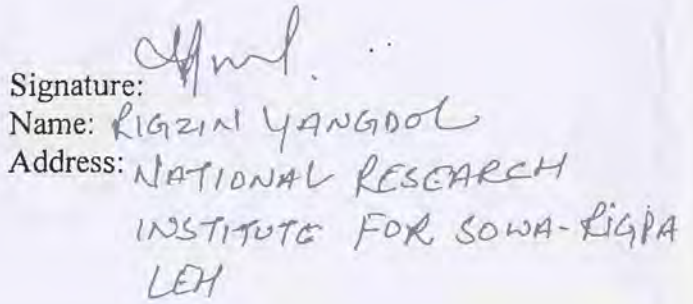 Signature:
Name: RIGZIN YANGDOL
Address: NATIONAL RESEARCH
INSTITUTE FOR SOWA-RIGPA
LEH